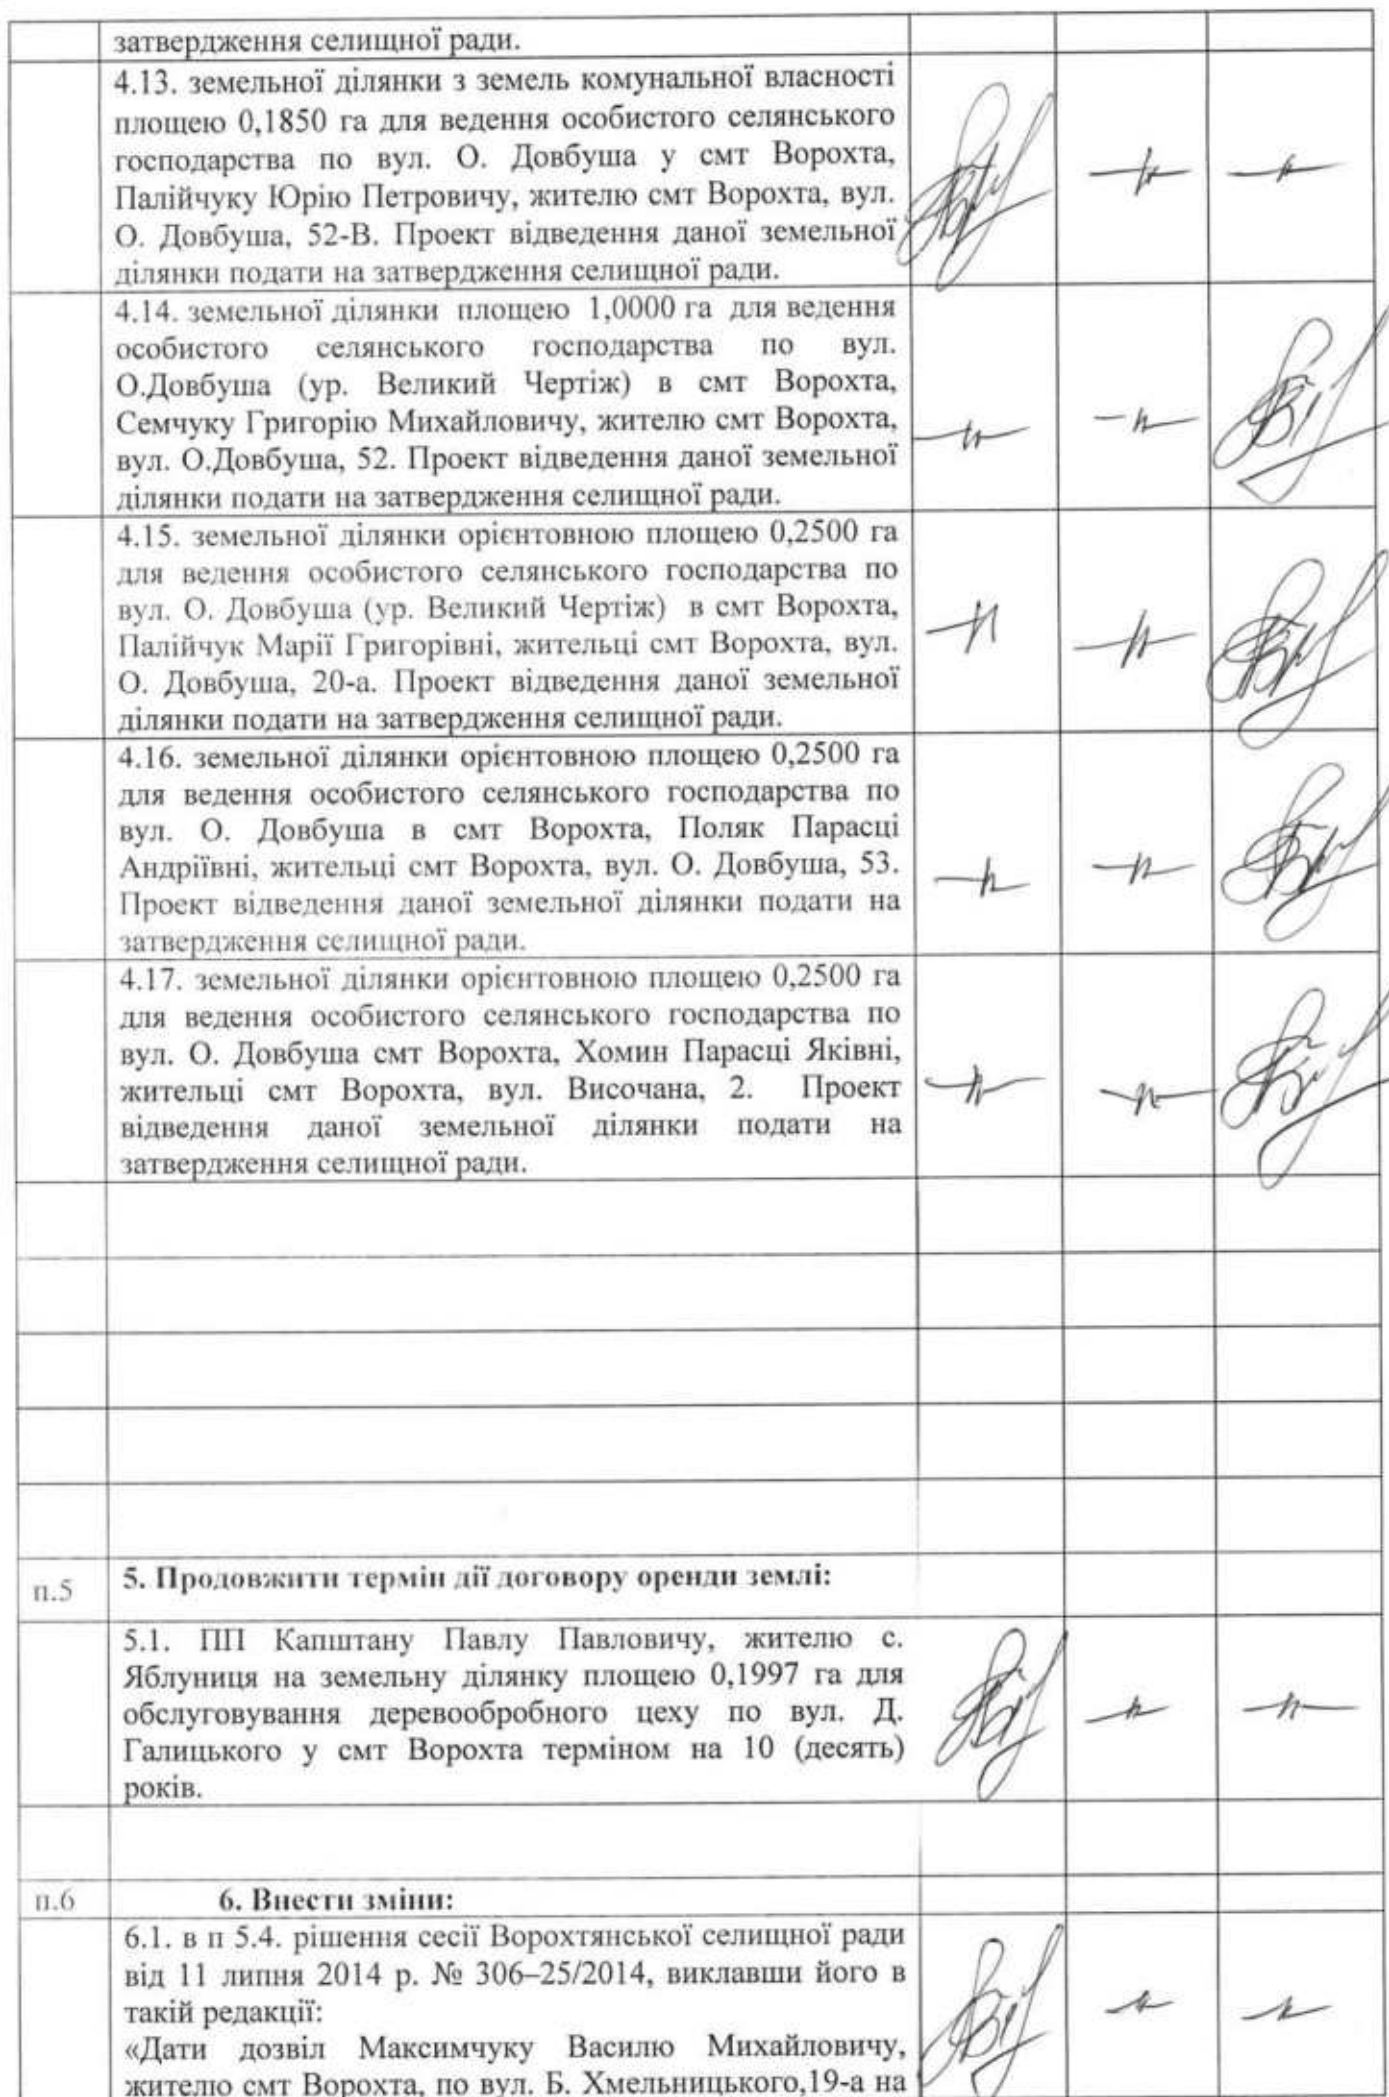 затвердження селищної ради.
4.13. земельної ділянки з земель комунальної власності
площею 0,1850 га для ведення особистого селянського
господарства по вул. О. Довбуша у смт Ворохта,
Палійчуку Юрію Петровичу, жителю смт Ворохта, вул.
О. Довбуша, 52-В. Проект відведення даної земельної
ділянки подати на затвердження селищної ради.
4.14. земельної ділянки площею 1,0000 га для ведення
особистого селянського господарства по вул.
О.Довбуша (ур. Великий Чертіж) в смт Ворохта,
Семчуку Григорію Михайловичу, жителю смт Ворохта,
вул. О.Довбуша, 52. Проект відведення даної земельної
ділянки подати на затвердження селищної ради.
4.15. земельної ділянки орієнтовною площею 0,2500 га
для ведення особистого селянського господарства по
вул. О. Довбуша (ур. Великий Чертіж) в смт Ворохта,
Палійчук Марії Григорівні, жительці смт Ворохта, вул.
О. Довбуша, 20-а. Проект відведення даної земельної
ділянки подати на затвердження селищної ради.
4.16. земельної ділянки орієнтовною площею 0,2500 га
для ведення особистого селянського господарства по
вул. О. Довбуша в смт Ворохта, Поляк Парасці
Андріївні, жительці смт Ворохта, вул. О. Довбуша, 53.
Проект відведення даної земельної ділянки подати на
затвердження селищної ради.
4.17. земельної ділянки орієнтовною площею 0,2500 га
для ведення особистого селянського господарства по
вул. О. Довбуша смт Ворохта, Хомин Парасці Яківні,
жительці смт Ворохта, вул. Височана, 2. Проект
відведення даної земельної ділянки подати на
затвердження селищної ради.
п.5 5. Продовжити термін дії договору оренди землі:
5.1. ПП Капштану Павлу Павловичу, жителю с.
Яблуниця на земельну ділянку площею 0,1997 га для
обслуговування деревообробного цеху по вул. Д.
Галицького у смт Ворохта терміном на 10 (десять)
років.
п.6 6. Внести зміни:
6.1. в п 5.4. рішення сесії Ворохтянської селищної ради
від 11 липня 2014 р. № 306–25/2014, виклавши його в
такій редакції:
«Дати дозвіл Максимчуку Василю Михайловичу,
жителю смт Ворохта, по вул. Б. Хмельницького,19-а на